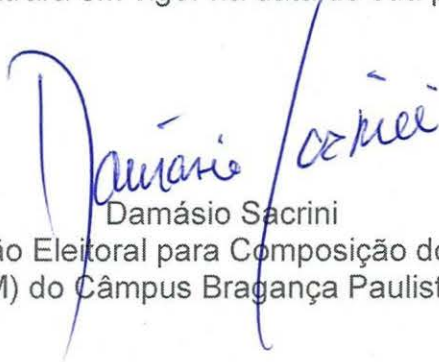 Damásio Sacrini
Damásio Sacrini
ão Eleitoral para Composição do
M) do Câmpus Bragança Paulist